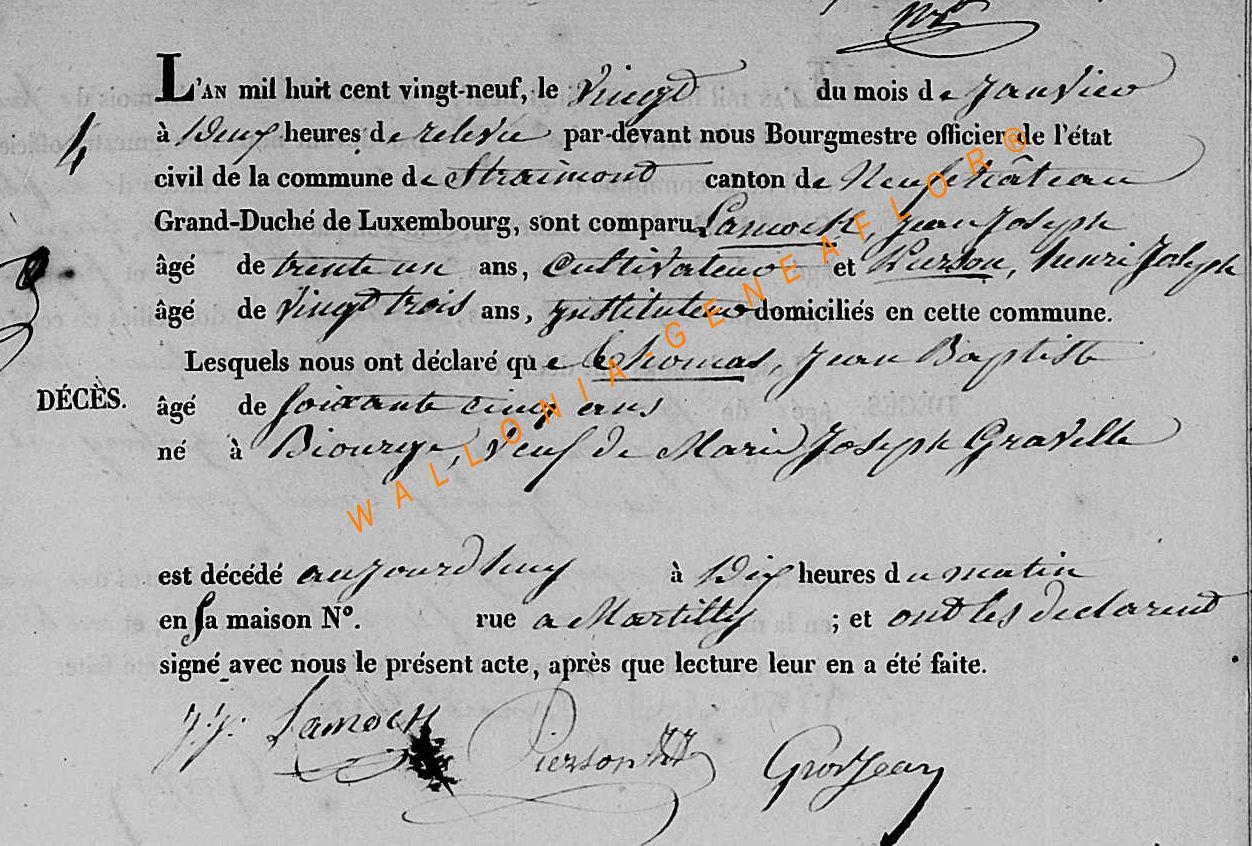 4
L'AN mil huit cent vingt-neuf, le Vingt du mois de Janvier
à Deux heures de relevée par-devant nous Bourgmestre officier de l'état
civil de la commune de Straimont canton de Neufchâteau
Grand-Duché de Luxembourg, sont comparu Lamock, jean Joseph
âgé de trente un ans, Cultivateur et Pierson, henri Joseph
âgé de Vingt trois ans, instituteur domiciliés en cette commune.
Lesquels nous ont déclaré que thomas, Jean Baptiste
DÉCÈS.
âgé de soixante cinq ans
né à Biourge, Veuf de Marie Joseph Gravelle
est décédé aujourd'huy à Dix heures du matin
en sa maison N°. rue a Martilly ; et ont les declarent
signé avec nous le présent acte, après que lecture leur en a été faite.
J. J. Lamock Pierson Grosjean
WALLONIA-GENEAFLOR®